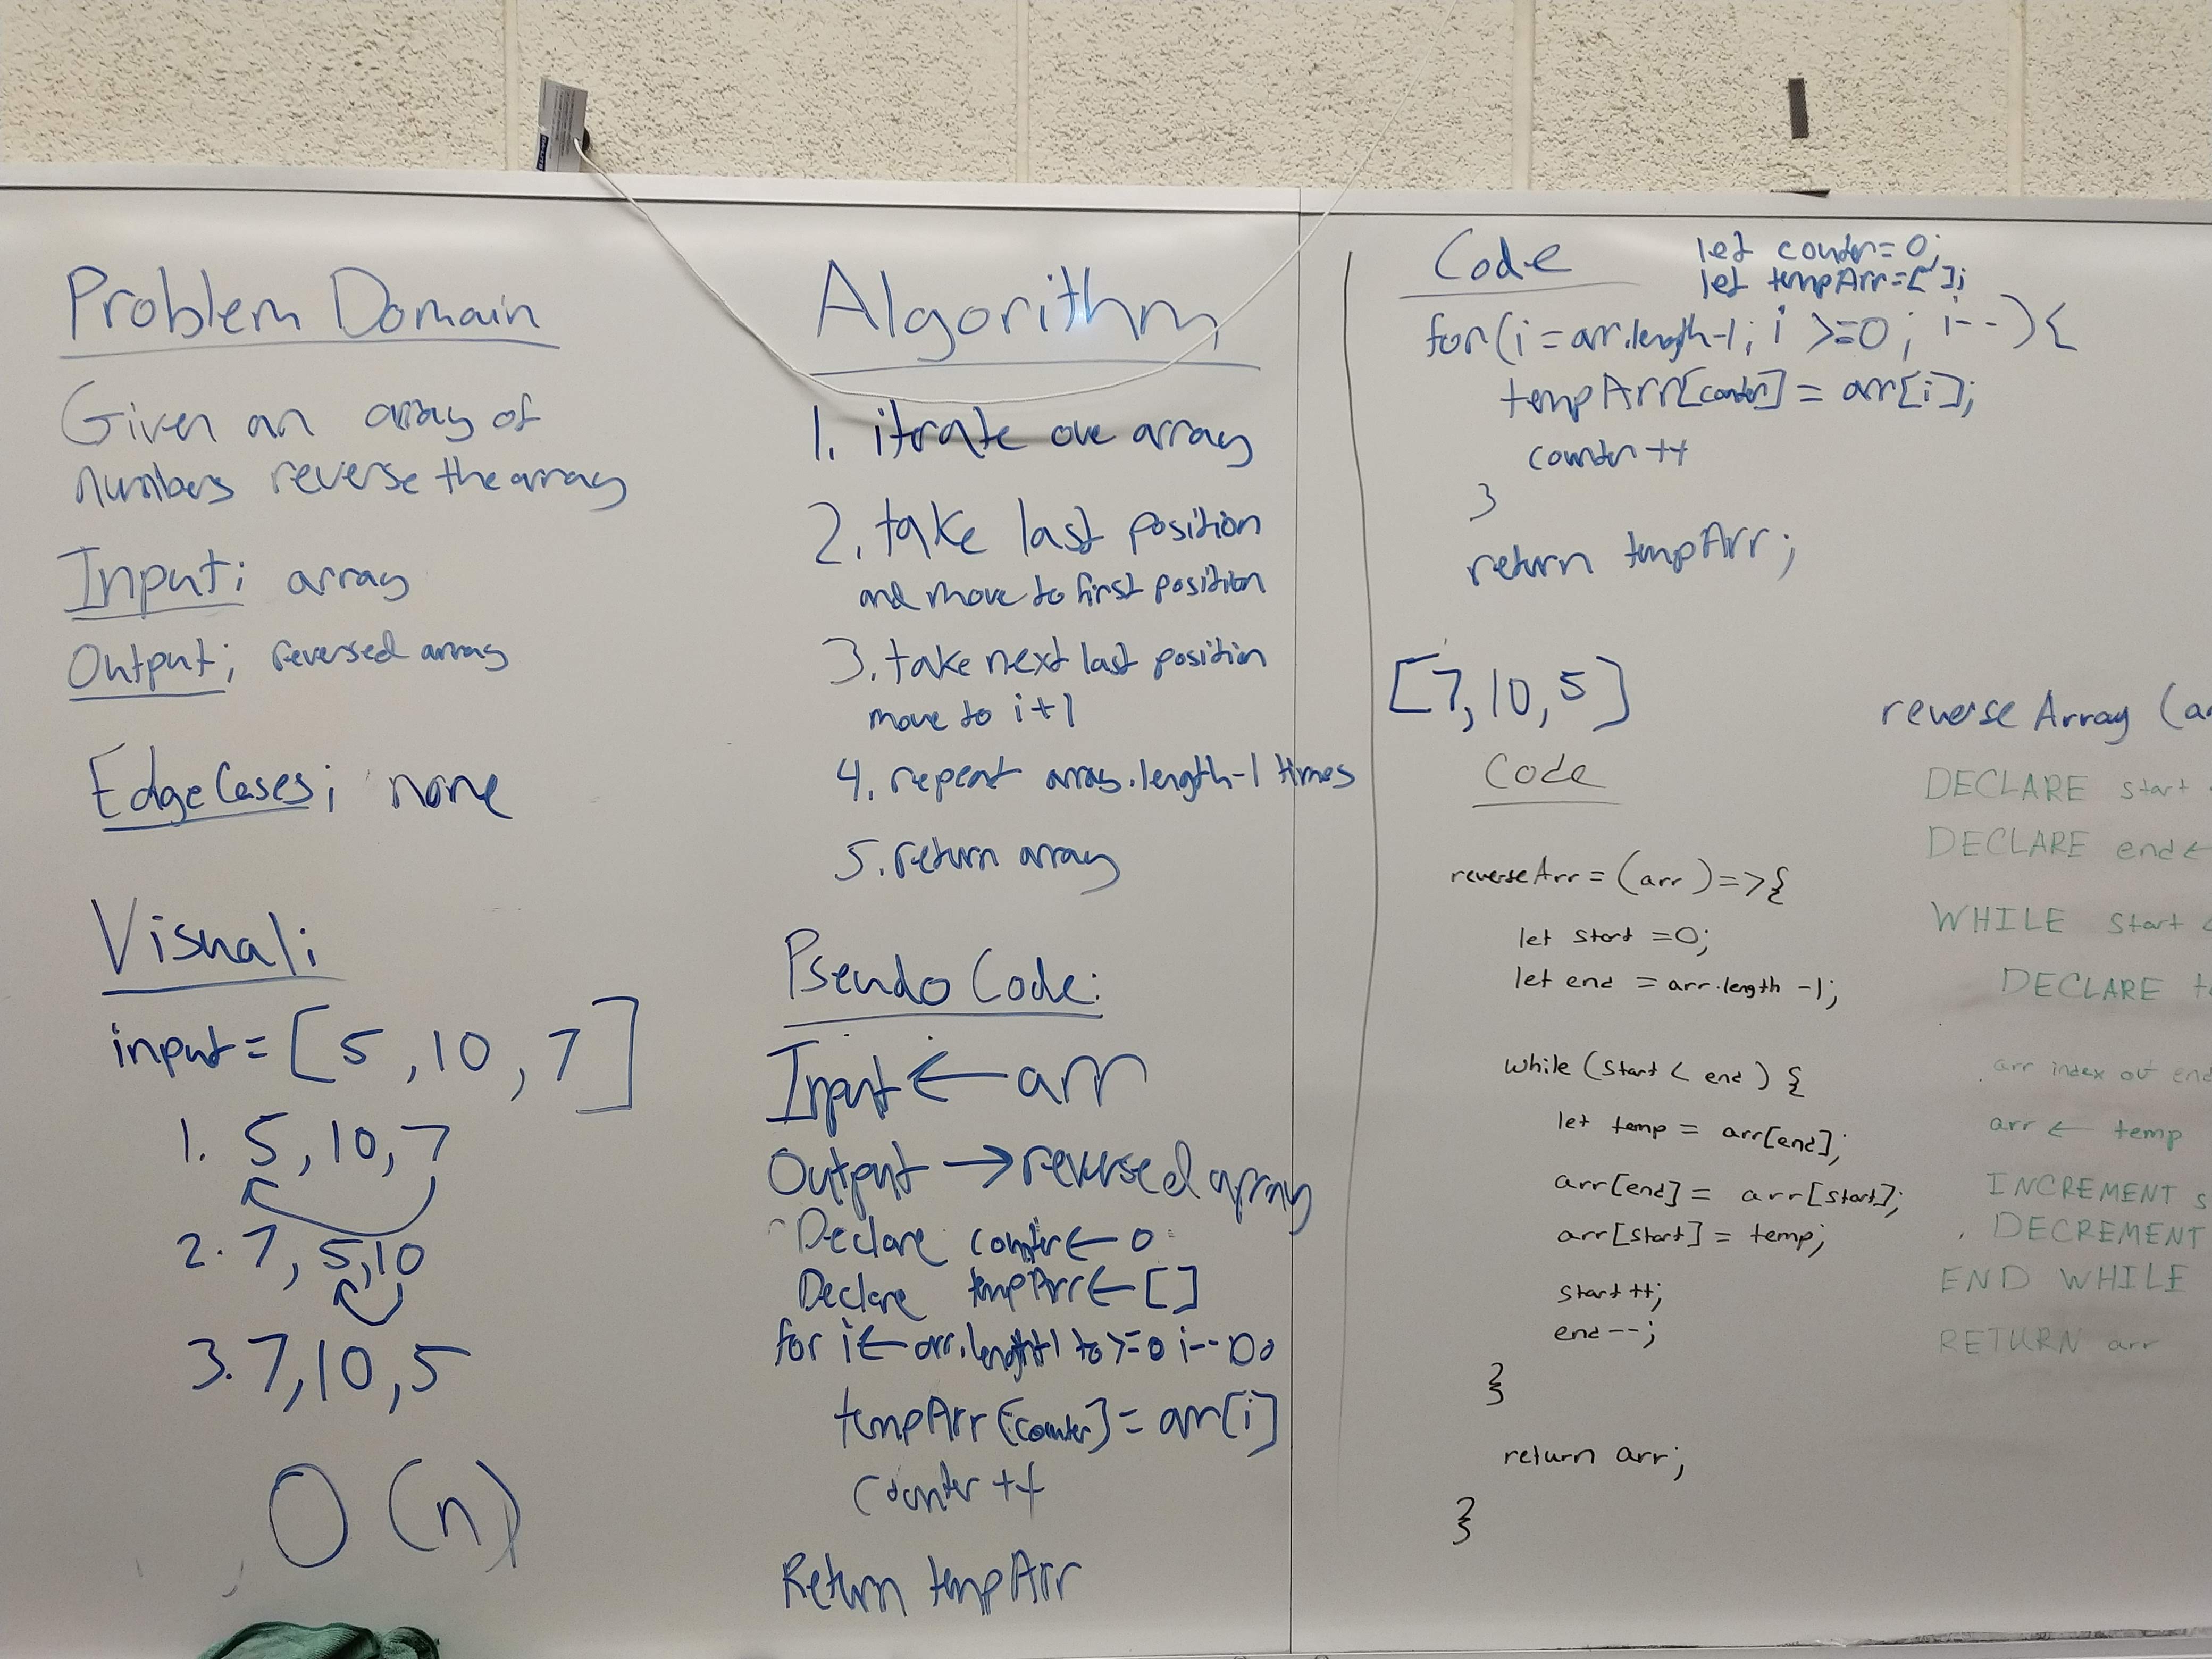 Problem Domain
Given an array of
numbers reverse the array
Input: array
Output: reversed array
Edge Cases: none
Visual:
input = [5, 10, 7]
1. 5, 10, 7
2. 7, 5, 10
3. 7, 10, 5
O(n)
Algorithm
1. itrate ove array
2. take last position
and move to first position
3. take next last position
move to i+1
4. repeat array.length-1 times
5. return array
Pseudo Code:
Input ← arr
Output → reversed array
Declare counter ← 0
Declare tempArr ← []
for i ← arr.length-1 to >=0 i-- Do
tempArr[counter] = arr[i]
counter ++
Return tempArr
Code
let counter = 0;
let tempArr = [];
for(i = arr.length-1; i >=0; i--){
tempArr[counter] = arr[i];
counter ++
}
return tempArr;
[7, 10, 5]
Code
reverseArr = (arr) => {
let start = 0;
let end = arr.length -1;
while (start < end) {
let temp = arr[end];
arr[end] = arr[start];
arr[start] = temp;
start ++;
end --;
}
return arr;
}
reverse Array (a
DECLARE start
DECLARE end ←
WHILE start <
DECLARE t
arr index out end
arr ← temp
INCREMENT s
DECREMENT
END WHILE
RETURN arr